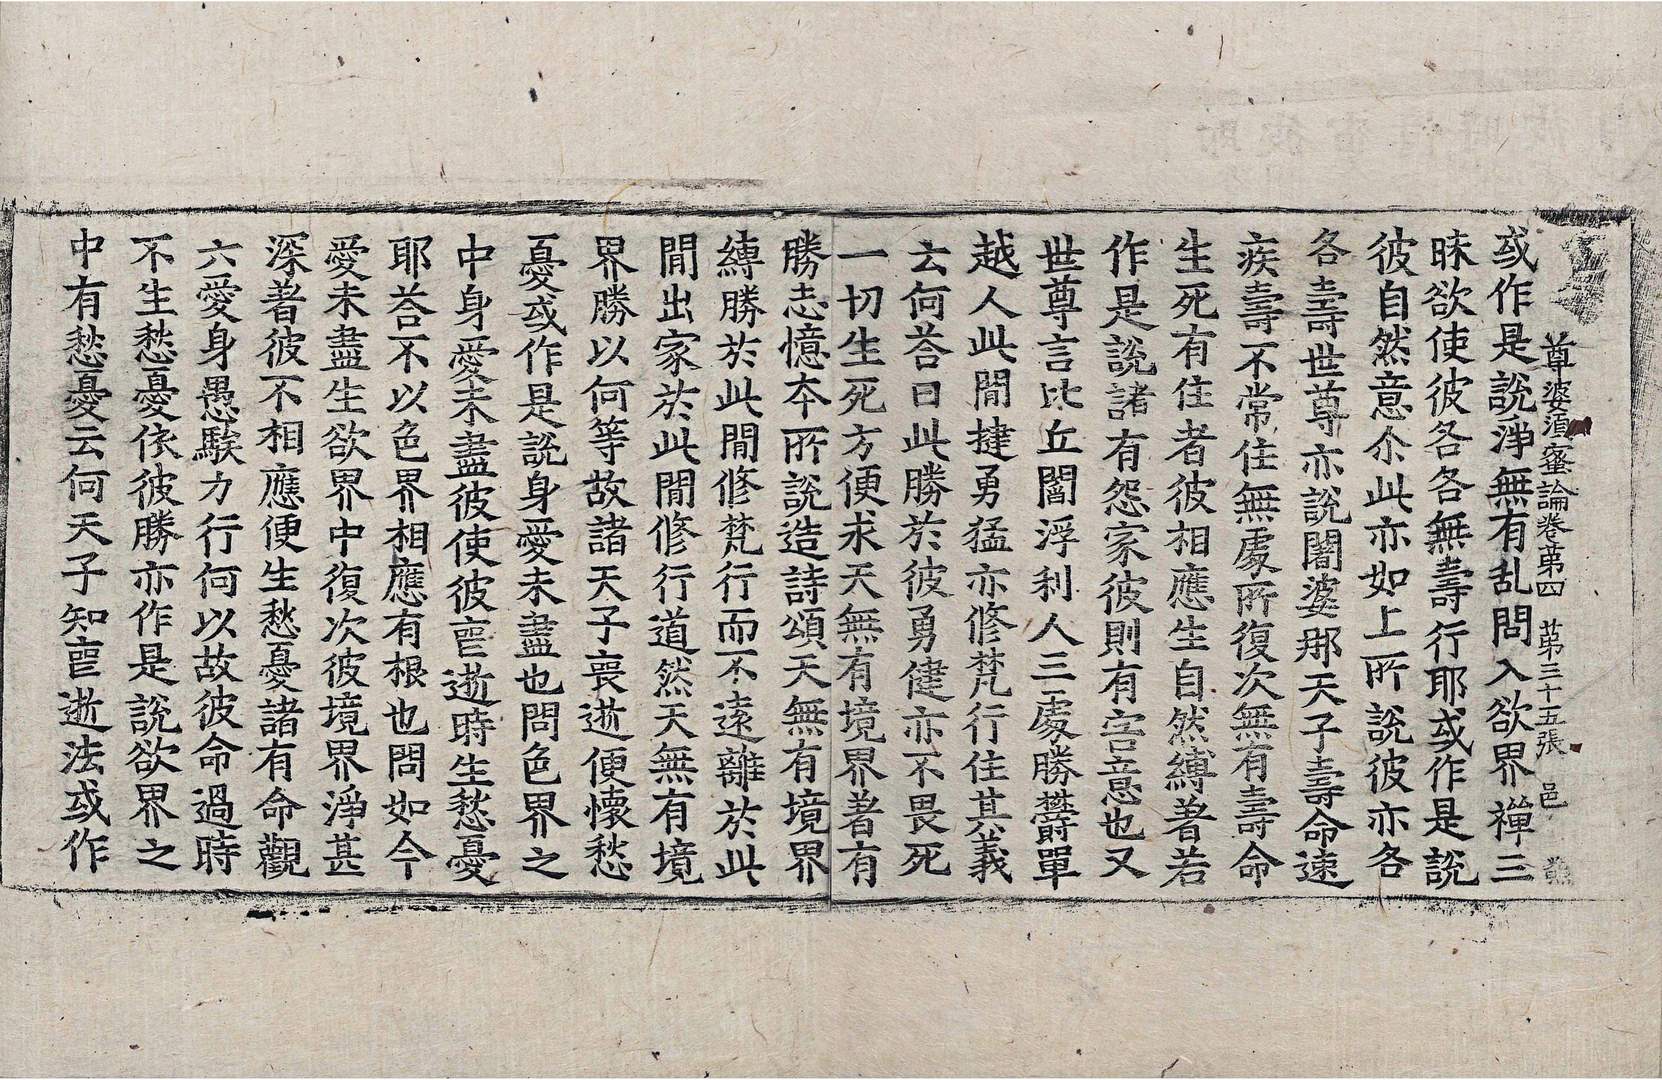 尊婆湏蜜論卷苐四　苐三十五張　邑
或作是說淨無有乱問入欲界禪三
昧欲使彼各各無壽行耶或作是說
彼自然意尒此亦如上所說彼亦各
各壽世尊亦說闍婆那天子壽命速
疾壽不常住無處所復次無有壽命
生死有住者彼相應生自然縛著若
作是說諸有怨家彼則有害意也又
世尊言比丘閻浮利人三處勝欝單
越人此閒揵勇猛亦修梵行住其義
云何荅曰此勝於彼勇健亦不畏死
一切生死方便求天無有境界著有
勝志憶本所說造詩頌天無有境界
縛勝於此閒修梵行而不遠離於此
閒出家於此閒修行道然天無有境
界勝以何等故諸天子喪逝便懷愁
憂或作是說身愛未盡也問色界之
中身愛未盡彼使彼䘮逝時生愁憂
耶荅不以色界相應有根也問如今
愛未盡生欲界中復次彼境界淨甚
深著彼不相應便生愁憂諸有命觀
六愛身愚騃力行何以故彼命過時
不生愁憂依彼勝亦作是說欲界之
中有愁憂云何天子知䘮逝法或作